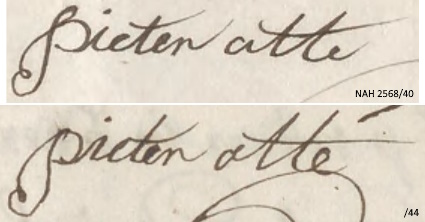 pieter atte
NAH 2568/40
pieter atte
/44